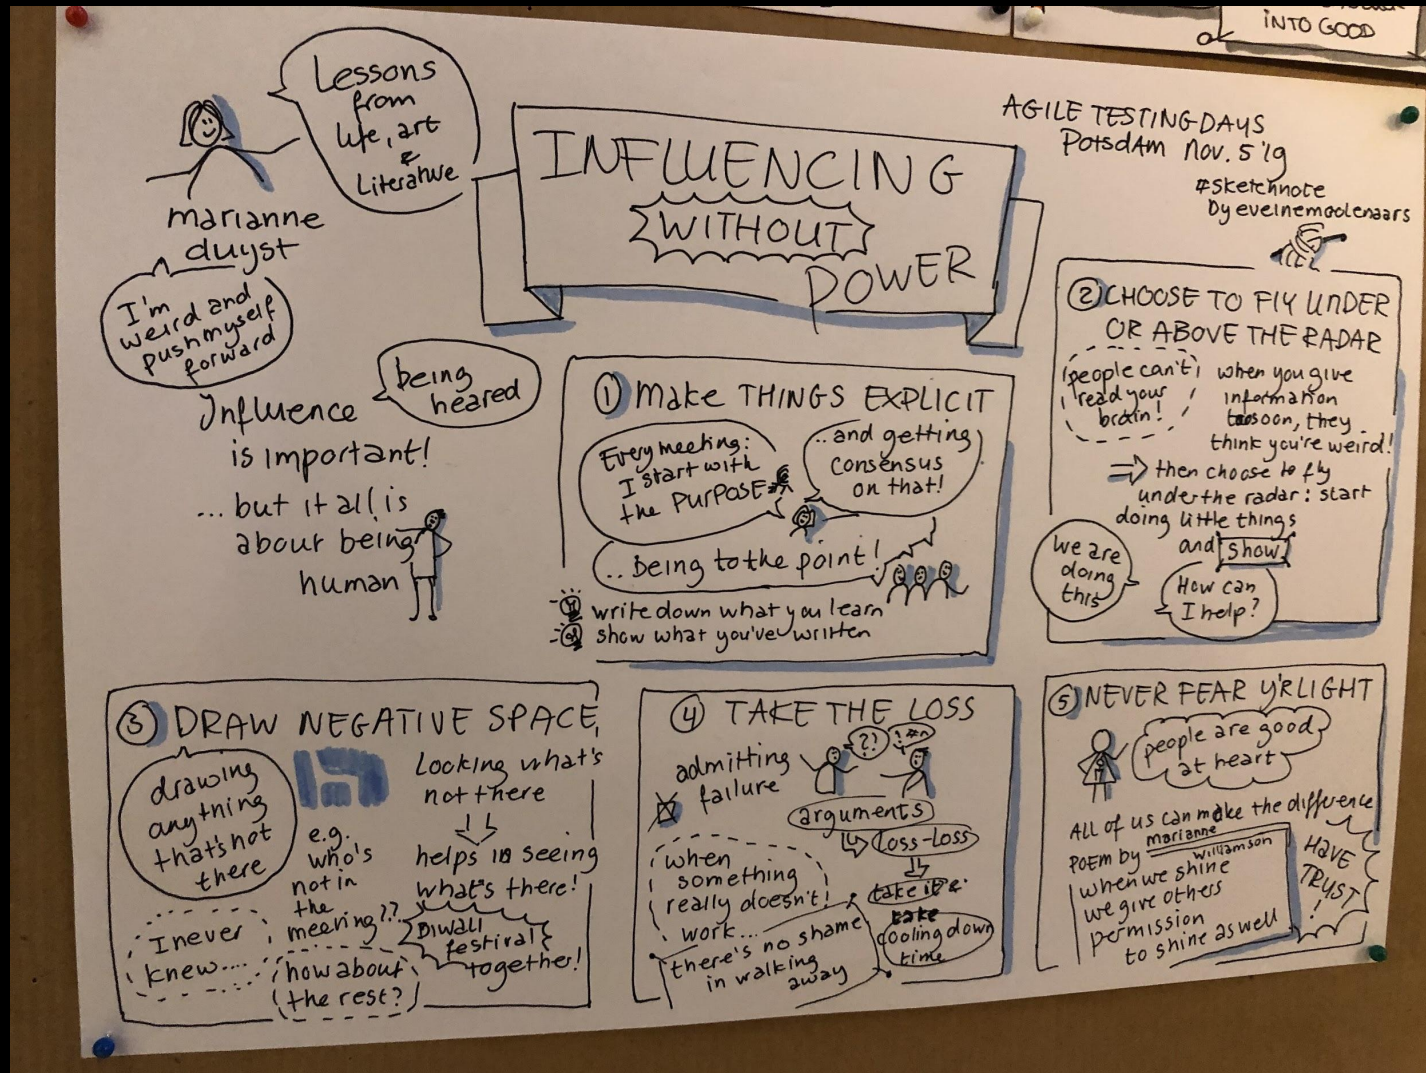 INTO GOOD
Lessons
from
life, art
&
Literature
marianne
duyst
I'm
weird and
push myself
forward
INFLUENCING
WITHOUT
POWER
AGILE TESTING DAYS
Potsdam nov. 5 '19
#sketchnote
by evelnemoolenaars
being
heared
Influence
is important!
... but it all is
about being
human
① make THINGS EXPLICIT
Every meeting:
I start with
the PURPOSE
..and getting
consensus
on that!
.. Being to the point!
write down what you learn
show what you've written
② CHOOSE TO FLY UNDER
OR ABOVE THE RADAR
people can't
read your
brain!
when you give
information
too soon, they
think you're weird!
⇒ then choose to fly
under the radar: start
doing little things
and show
we are
doing
this
How can
I help?
③ DRAW NEGATIVE SPACE
drawing
anything
that's not
there
Looking what's
not there
helps in seeing
what's there!
e.g.
who's
not in
the
meeting??
I never
knew....
how about
the rest?
Diwali
festival
together!
④ TAKE THE LOSS
admitting
failure
?!
!#@
arguments
loss-loss
take it &
take
cooling down
time
when
something
really doesn't!
work...
there's no shame
in walking
away
⑤ NEVER FEAR Y'R LIGHT
people are good
at heart
ALL of us can make the difference
POEM by marianne
williamson
when we shine
we give others
permission
to shine as well
HAVE
TRUST
!